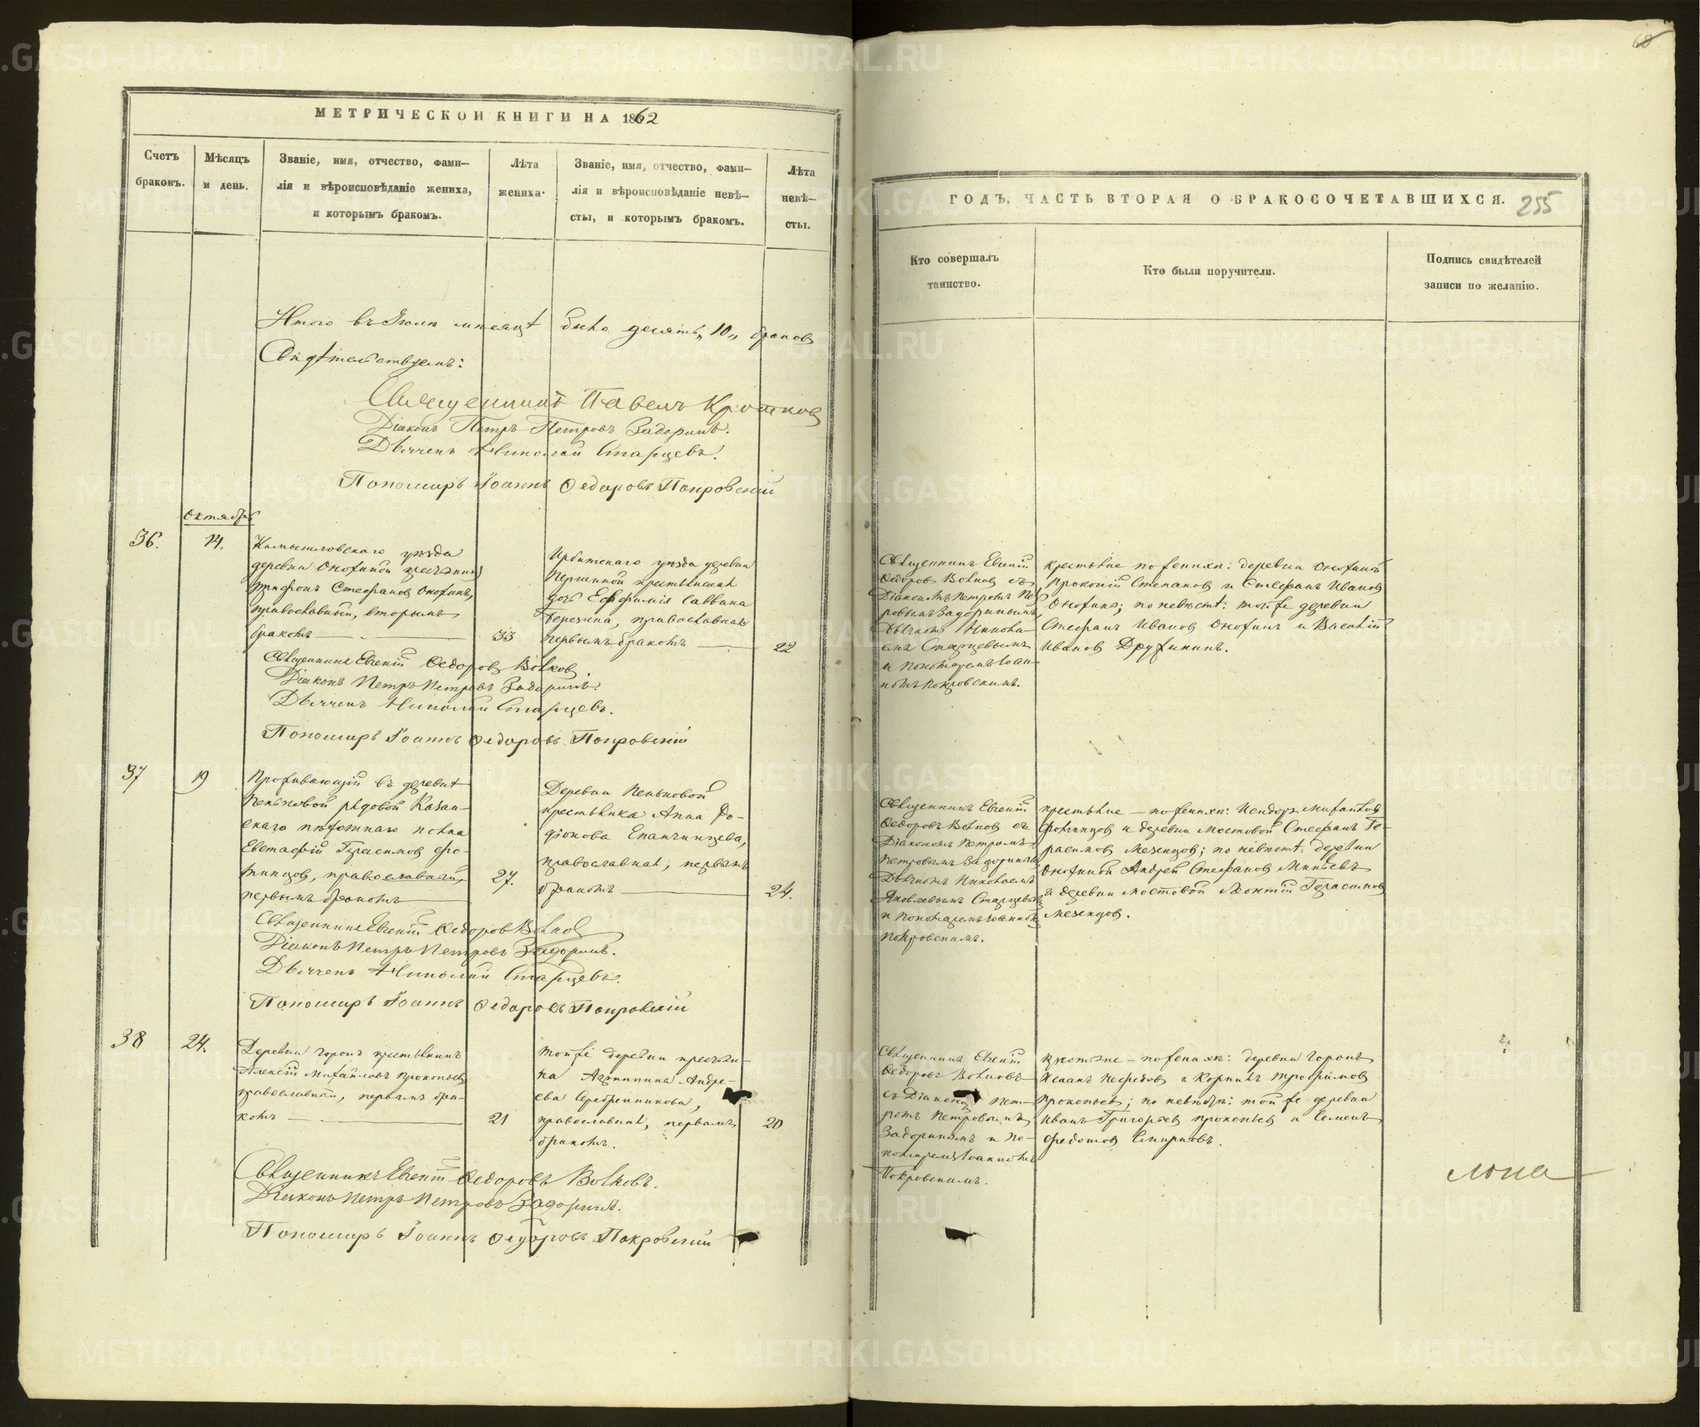 МЕТРИЧЕСКОЙ КНИГИ НА 1862
Счетъ браковъ.
Мѣсяцъ и день.
Званіе, имя, отчество, фами-
лія и вѣроисповѣданіе жениха,
и которымъ бракомъ.
Лѣта
жениха.
Званіе, имя, отчество, фами-
лія и вѣроисповѣданіе невѣ-
сты, и которымъ бракомъ.
Лѣта
невѣ-
сты.
Итого въ мѣсяцѣ было десять "10" браковъ
Свидѣтельствуемъ:
Священникъ Павелъ Кротковъ
Діаконъ Петръ Петровъ Задоринъ.
Дьячекъ Николай Старцевъ.
Пономарь Іоаннъ Федоровъ Покровскій
Октябрь
36.
14.
Камышловскаго уѣзда
деревни
Стефановъ
православный, вторымъ
бракомъ
33
Ирбитскаго уѣзда деревни
крестьянская
дочь Евфимія Саввина
православная
первымъ бракомъ
22
Священникъ Евгеній Федоровъ Волковъ
Діаконъ Петръ Петровъ Задоринъ.
Дьячекъ Николай Старцевъ.
Пономарь Іоаннъ Федоровъ Покровскій
37
19
Проживающій въ деревнѣ
Пеньковой рядовой Казан-
скаго пѣхотнаго полка
Евстафій Герасимовъ
православный,
первымъ бракомъ
27.
Деревни Пеньковой
крестьянка Анна Ро-
діонова Епанчинцева,
православная, первымъ
бракомъ
24.
Священникъ Евгеній Федоровъ Волковъ
Діаконъ Петръ Петровъ Задоринъ.
Дьячекъ Николай Старцевъ.
Пономарь Іоаннъ Федоровъ Покровскій
38
24.
Деревни крестьянинъ
Алексѣй Михайловъ Прокопьевъ
православный, первымъ бра-
комъ
21
Той же деревни крестьян-
ка Агриппина Андре-
ева Серебренникова,
православная, первымъ
бракомъ.
20
Священникъ Евгеній Федоровъ Волковъ.
Діаконъ Петръ Петровъ Задоринъ.
Пономарь Іоаннъ Федоровъ Покровскій
68
ГОДЪ, ЧАСТЬ ВТОРАЯ О БРАКОСОЧЕТАВШИХСЯ.
255
Кто совершалъ
таинство.
Кто были поручители.
Подпись свидѣтелей
записи по желанію.
Священникъ Евгеній
Федоровъ Волковъ съ
Діакономъ Петромъ Пет-
ровымъ Задоринымъ
Дьячкомъ Никола-
емъ Старцевымъ
и Пономаремъ Іоан-
номъ Покровскимъ.
Крестьяне по женихѣ: деревни
Прокопій Степановъ и Стефанъ Ивановъ
по невѣстѣ: той же деревни
Стефанъ Ивановъ и Василій
Ивановъ Дружининъ.
Священникъ Евгеній
Федоровъ Волковъ съ
Діакономъ Петромъ
Петровымъ Задоринымъ
Дьячкомъ Николаемъ
Яковлевымъ Старцевымъ
и Пономаремъ Іоанномъ
Покровскимъ.
Крестьяне – по женихѣ:
и деревни Мостовой Стефанъ Ге-
расимовъ Мезенцовъ; по невѣстѣ: деревни
Андрей Стефановъ
и деревни Мостовой Леонтій Герасимовъ
Мезенцовъ.
Священникъ Евгеній
Федоровъ Волковъ
съ Діакономъ Пет-
ромъ Петровымъ
Задоринымъ и По-
номаремъ Іоанномъ
Покровскимъ.
Крестьяне – по женихѣ: деревни
и Корнилъ Трофимовъ
Прокопьевъ; по невѣстѣ: той же деревни
Иванъ Григорьевъ Прокопьевъ и Семенъ
Федотовъ Смирновъ.
METRIKI.GASO-URAL.RU